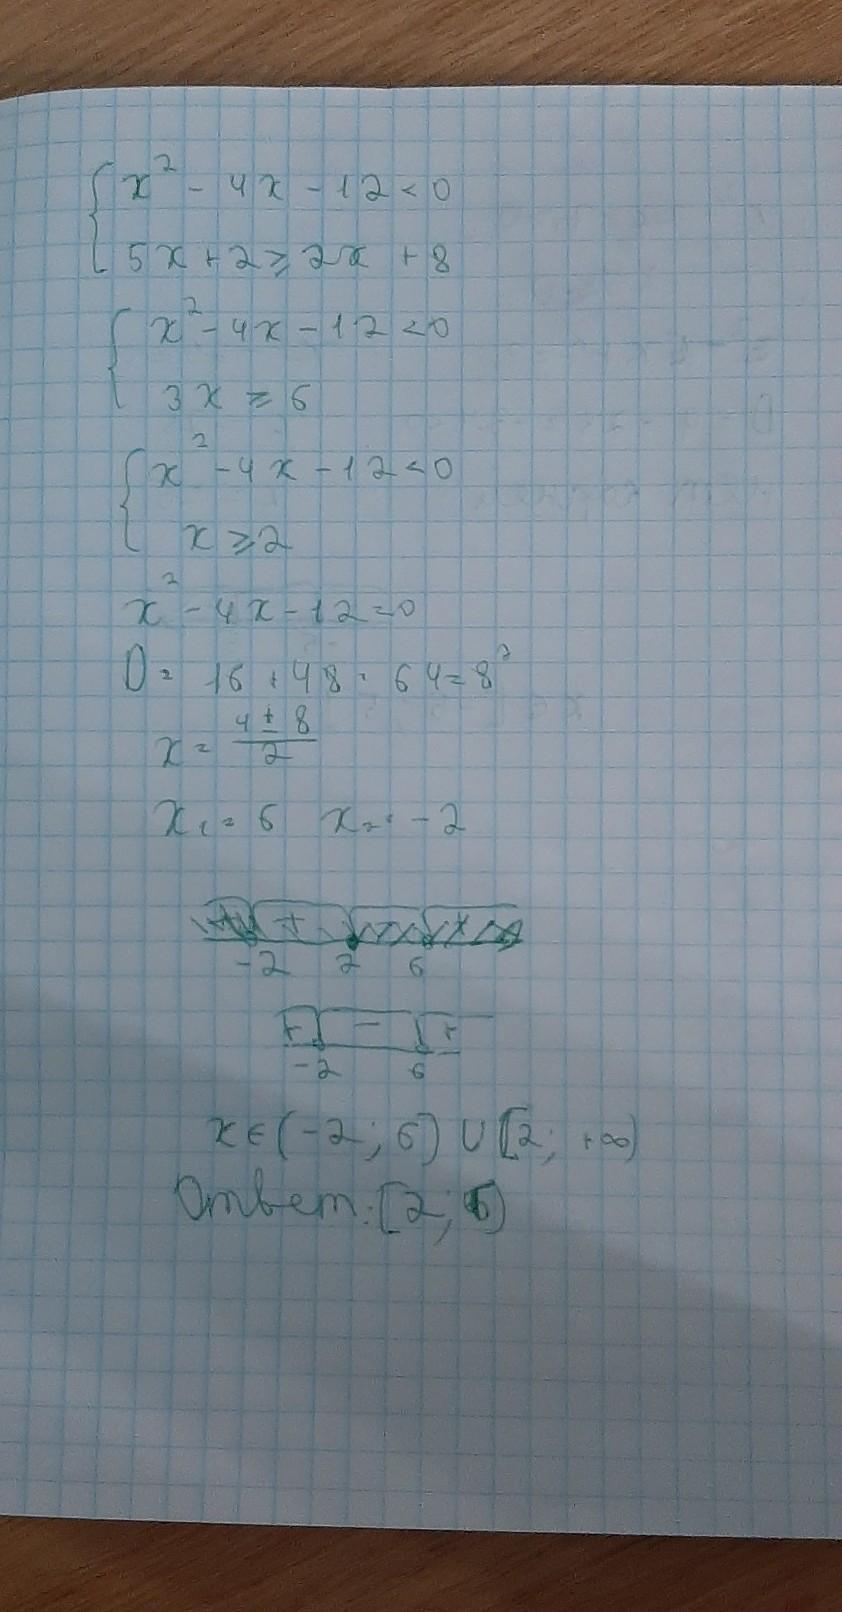 { x² - 4x - 12 < 0
5x + 2 ⩾ 2x + 8
{ x² - 4x - 12 < 0
3x ⩾ 6
{ x² - 4x - 12 < 0
x ⩾ 2
x² - 4x - 12 = 0
D = 16 + 48 = 64 = 8²
x = (4 ± 8)/2
x₁ = 6 x₂ = -2
-2 2 6
+ - +
-2 6
x ∈ (-2; 6) ∪ [2; +∞)
Ответ: [2; 6)